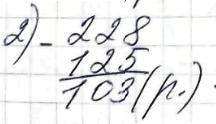 2) - 228
125
103 (р.)